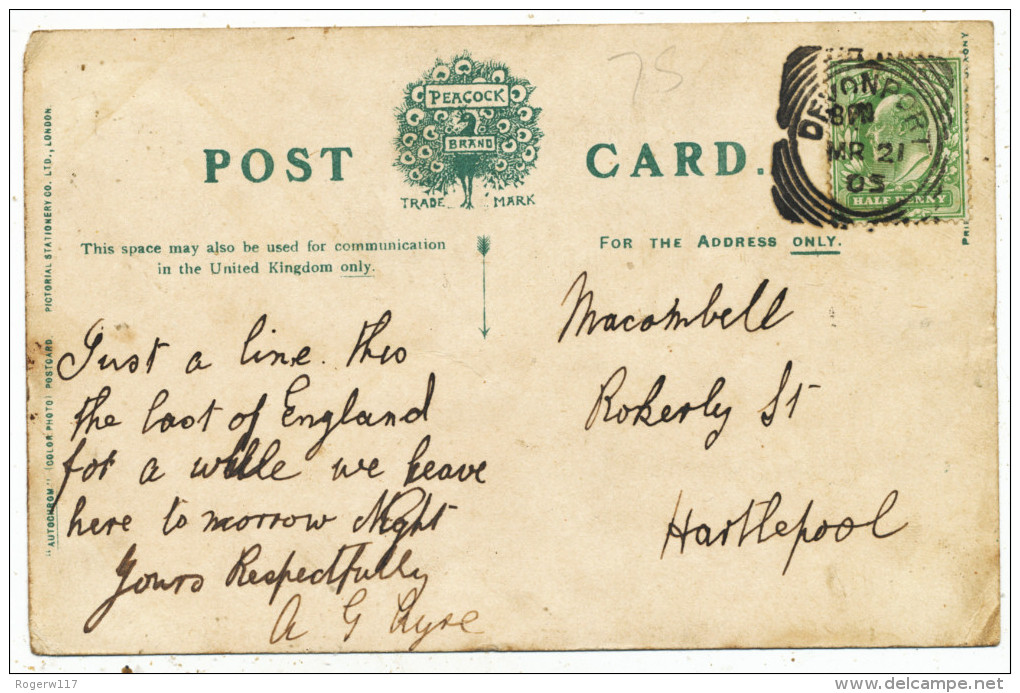 POST CARD.
PEACOCK
BRAND
TRADE MARK
75
DEVONPORT
MR 21
05
HALF PENNY
This space may also be used for communication
in the United Kingdom only.
FOR THE ADDRESS ONLY.
Just a line this
the last of England
for a while we leave
here to morrow Night
Yours Respectfully
A G
Macombell
Rokerly St
Hartlepool
"AUTOCHROM" (COLOR PHOTO) POSTCARD PICTORIAL STATIONERY CO. LTD., LONDON.
Rogerw117
delcampe.net